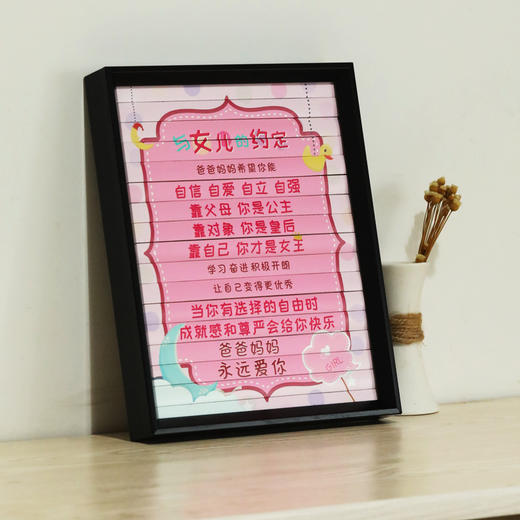 与女儿的约定
爸爸妈妈希望你能
自信 自爱 自立 自强
靠父母 你是公主
靠对象 你是皇后
靠自己 你才是女王
学习奋进积极开朗
让自己变得更优秀
当你有选择的自由时
成就感和尊严会给你快乐
爸爸妈妈
永远爱你
GIRL